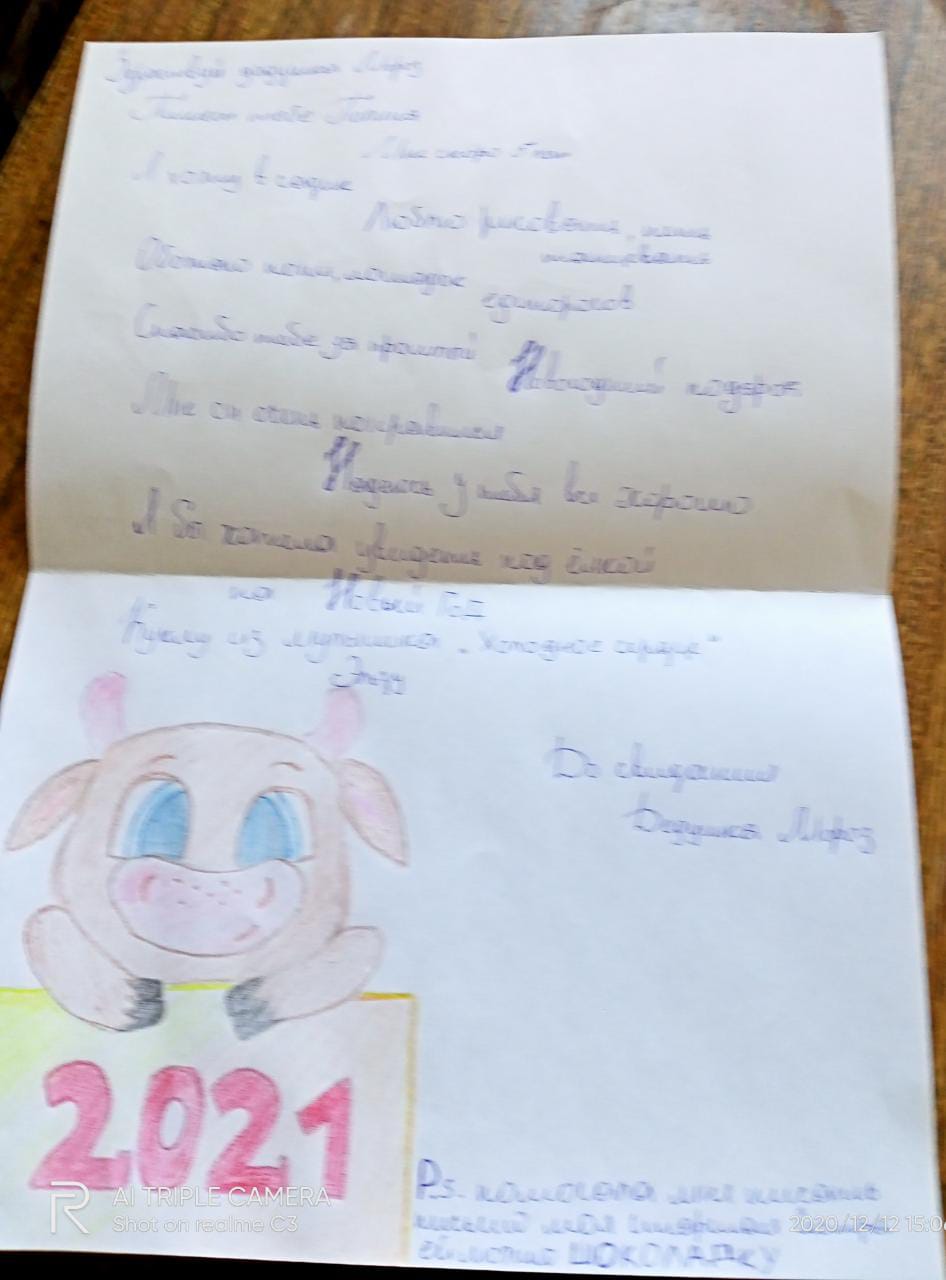 Здраствуй дедушка Мороз
Пишет тебе Полина
Мне скоро 5 лет
Я хожу в садик
Люблю рисовать, петь
танцевать
Обожаю пони, лошадок
единорогов
Спасибо тебе за прошлый Новогодний подарок
Мне он очень понравился
Надеюсь у тебя все хорошо
Я бы хотела увидеть под ёлкой
на Новый Год
Куклу из мультика „Холодное сердце"
Эльзу
До свидания
Дедушка Мороз
2021
P.s. помогала мне писать
письмо моя старшая
ей можно ШОКОЛАДКУ
R
AI TRIPLE CAMERA
Shot on realme C3
2020/12/12 15:0